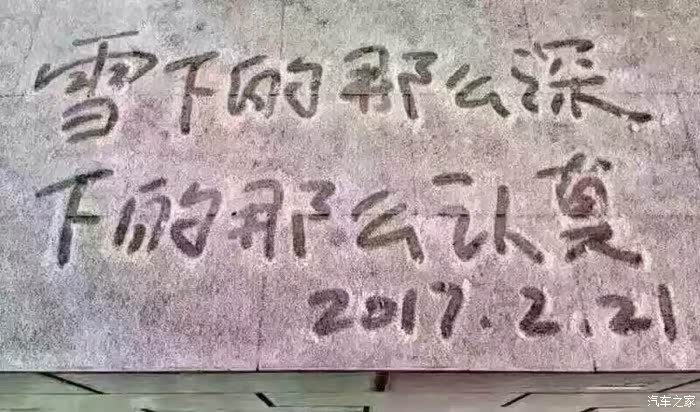 雪下的那么深
下的那么认真
2017.2.21
汽车之家